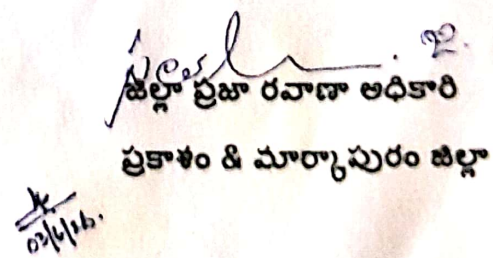 జిల్లా ప్రజా రవాణా అధికారి
ప్రకాశం & మార్కాపురం జిల్లా